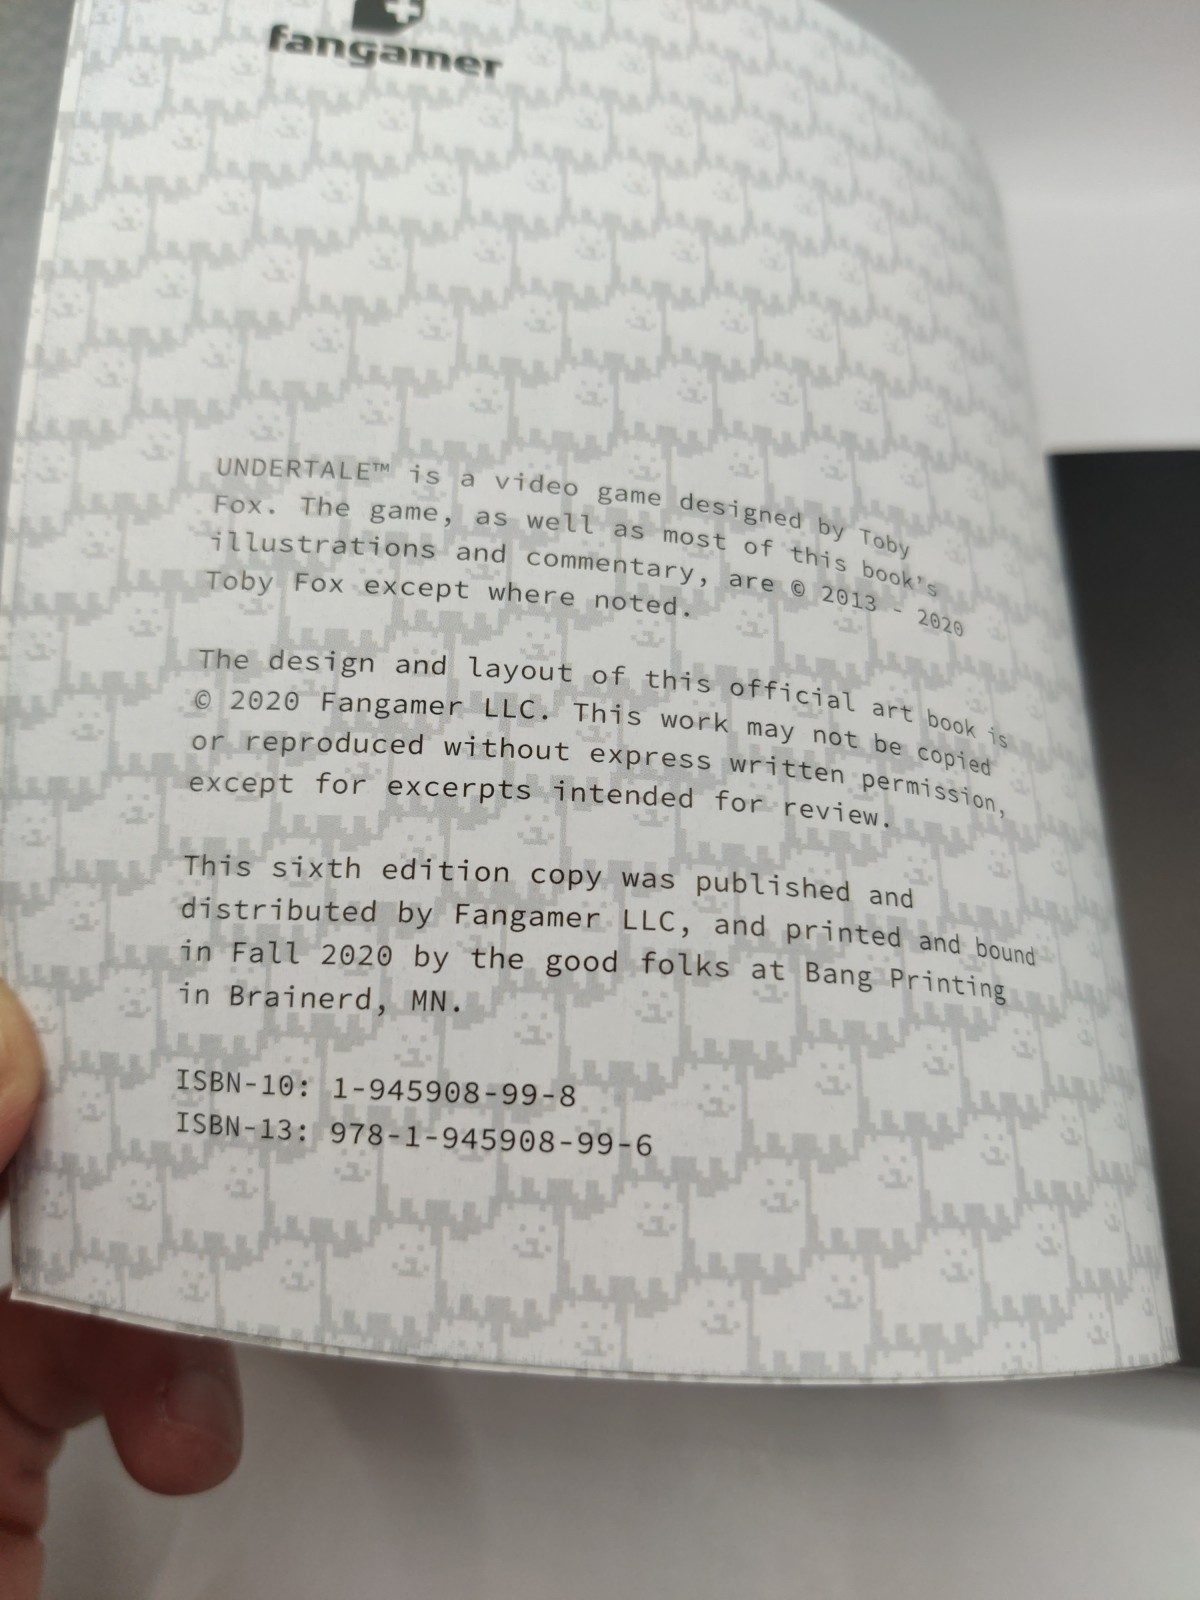 fangamer
UNDERTALE™ is a video game designed by Toby
Fox. The game, as well as most of this book's
illustrations and commentary, are © 2013 - 2020
Toby Fox except where noted.
The design and layout of this official art book is
© 2020 Fangamer LLC. This work may not be copied
or reproduced without express written permission,
except for excerpts intended for review.
This sixth edition copy was published and
distributed by Fangamer LLC, and printed and bound
in Fall 2020 by the good folks at Bang Printing
in Brainerd, MN.
ISBN-10: 1-945908-99-8
ISBN-13: 978-1-945908-99-6